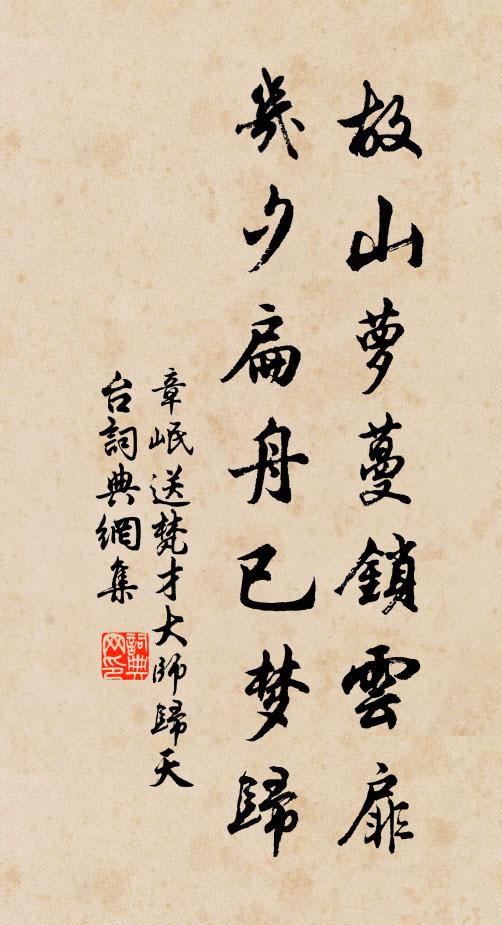 故山萝蔓鎖雲扉
幾夕扁舟已梦歸
章岷送梵才大師歸天
台詞典網集
詞典网印